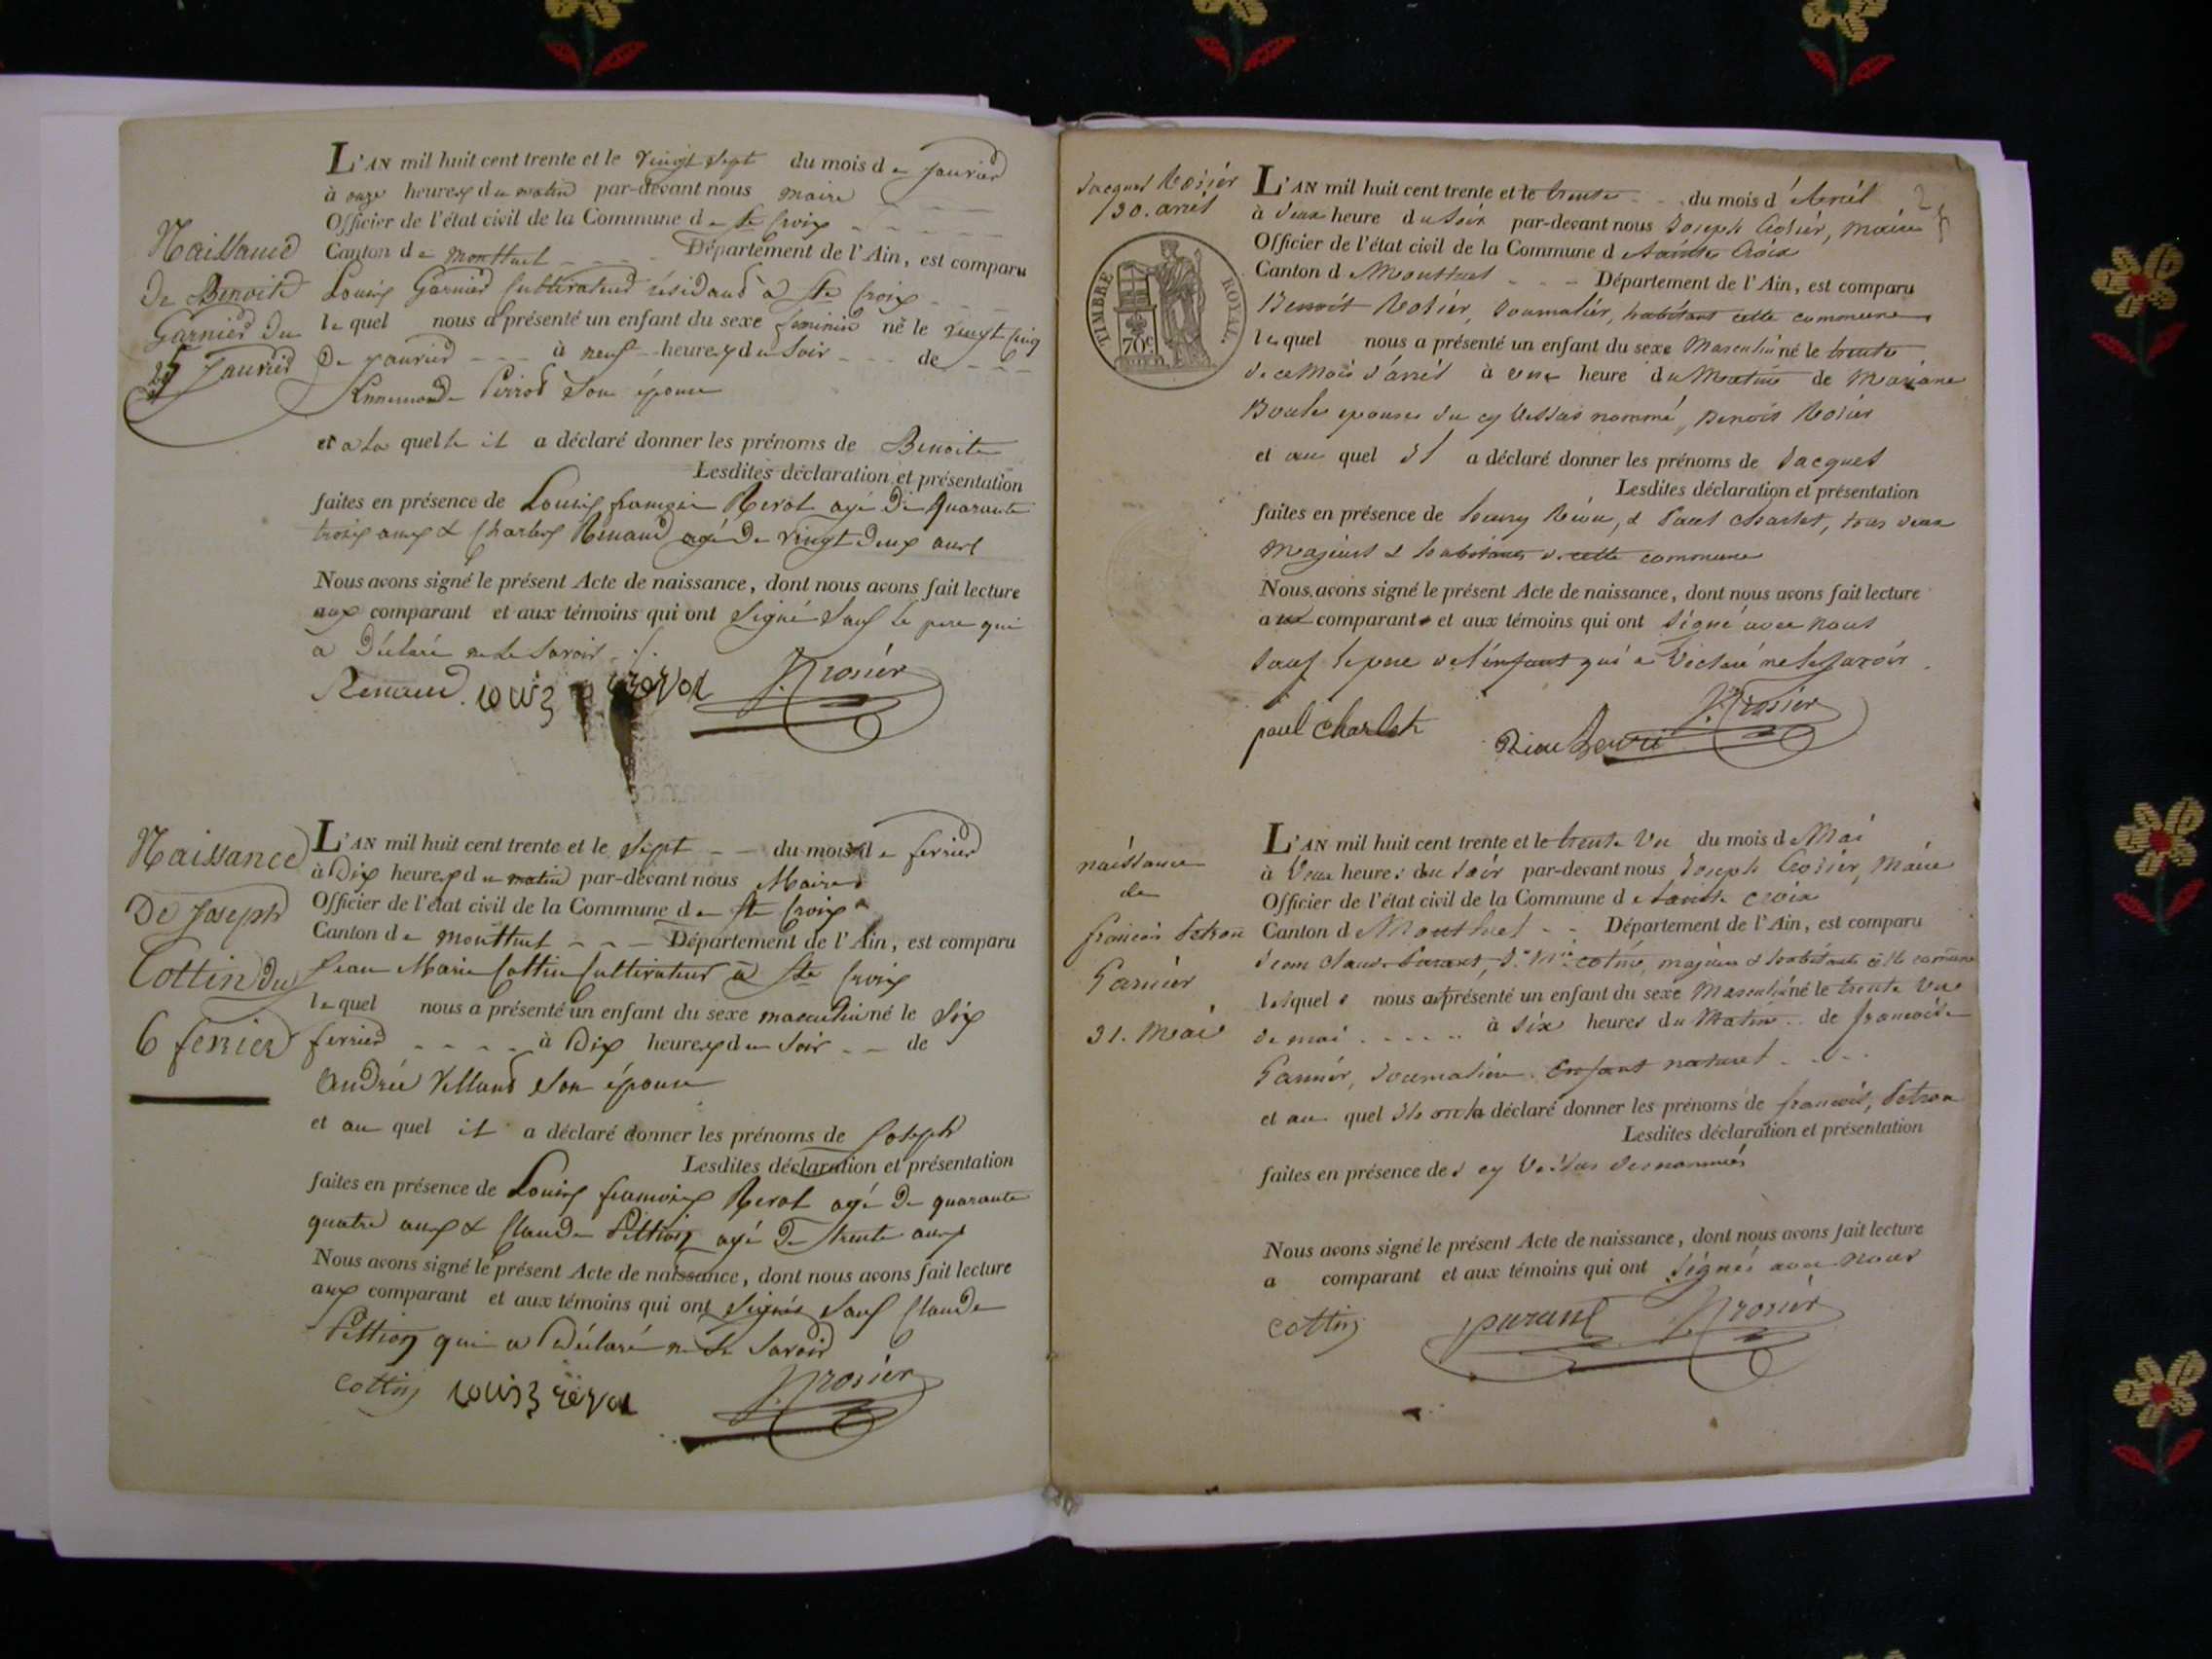 Naissance
de Benoite
Garnier du
25 Janvier
L'AN mil huit cent trente et le vingt sept du mois de Janvier
à onze heures du matin par-devant nous maire
Officier de l'état civil de la Commune de Ste Croix
Canton de Montluel Département de l'Ain, est comparu
Louis Garnier Cultivateur résidant à Ste Croix
lequel nous a présenté un enfant du sexe feminin né le vingt cinq
De Janvier à neuf heures du Soir de
Annemonde Perrod Son épouse
et a la quelle il a déclaré donner les prénoms de Benoite
Lesdites déclaration et présentation
faites en présence de Louis françois Revol agé De Quarante
trois ans & Charles Renaud agé De vingt deux ans
Nous avons signé le présent Acte de naissance, dont nous avons fait lecture
aux comparant et aux témoins qui ont Signé Sauf le pere qui
a Déclaré ne le Savoir
Renaud. Louis revol J. Rosier
Naissance
De Joseph
Cottin du
6 fevrier
L'AN mil huit cent trente et le Sept du mois de fevrier
à Dix heures du matin par-devant nous Maire
Officier de l'état civil de la Commune de Ste Croix
Canton de Montluel Département de l'Ain, est comparu
Jean Marie Cottin Cultivateur à Ste Croix
lequel nous a présenté un enfant du sexe masculin né le Six
fevrier à Dix heures du Soir de
Andrée Villand Son épouse
et au quel il a déclaré donner les prénoms de Joseph
Lesdites déclaration et présentation
faites en présence de Louis françois Revol agé De quarante
quatre ans & Claude Pittion agé De trente ans
Nous avons signé le présent Acte de naissance, dont nous avons fait lecture
aux comparant et aux témoins qui ont Signés Sauf Claude
Pittion qui a Déclaré ne le Savoir
Cottin Louis révol J. Rosier
Jacques Rosier
30. avril
TIMBRE ROYAL
70c
L'AN mil huit cent trente et le trente du mois d'Avril
à deux heure du Soir par-devant nous Joseph Rosier, Maire
Officier de l'état civil de la Commune de Sainte Croix
Canton de Montluel Département de l'Ain, est comparu
Benoit Rosier, Journalier, habitant cette commune
lequel nous a présenté un enfant du sexe Masculin né le trente
de ce Mois d'avril à une heure du Matin de Mariane
épouse du cy dessus nommé, Benoit Rosier
et au quel il a déclaré donner les prénoms de Jacques
Lesdites déclaration et présentation
faites en présence de henry Riou, & Paul Charlet, tous deux
Majeurs & habitants de cette commune
Nous avons signé le présent Acte de naissance, dont nous avons fait lecture
aux comparant et aux témoins qui ont Signé avec nous
Sauf le pere de l'enfant qui a déclaré ne le savoir.
paul charlet Riou henri J. Rosier
naissance
de
francois Petron
Garnier
31. Mai
L'AN mil huit cent trente et le trente un du mois de Mai
à deux heures du soir par-devant nous Joseph Rosier, Maire
Officier de l'état civil de la Commune de Sainte Croix
Canton de Montluel Département de l'Ain, est comparu
Jean Claude Durant, Jn Mie cotin, majeurs & habitants cette commune
lesquels nous a présenté un enfant du sexe Masculin né le trente un
de mai à six heures du Matin de francoise
Garnier, Journalière. Enfant naturel
et au quel ils ont déclaré donner les prénoms de francois, Petron
Lesdites déclaration et présentation
faites en présence des cy dessus dénommés
Nous avons signé le présent Acte de naissance, dont nous avons fait lecture
a comparant et aux témoins qui ont Signés avec nous
cottin durant J. Rosier